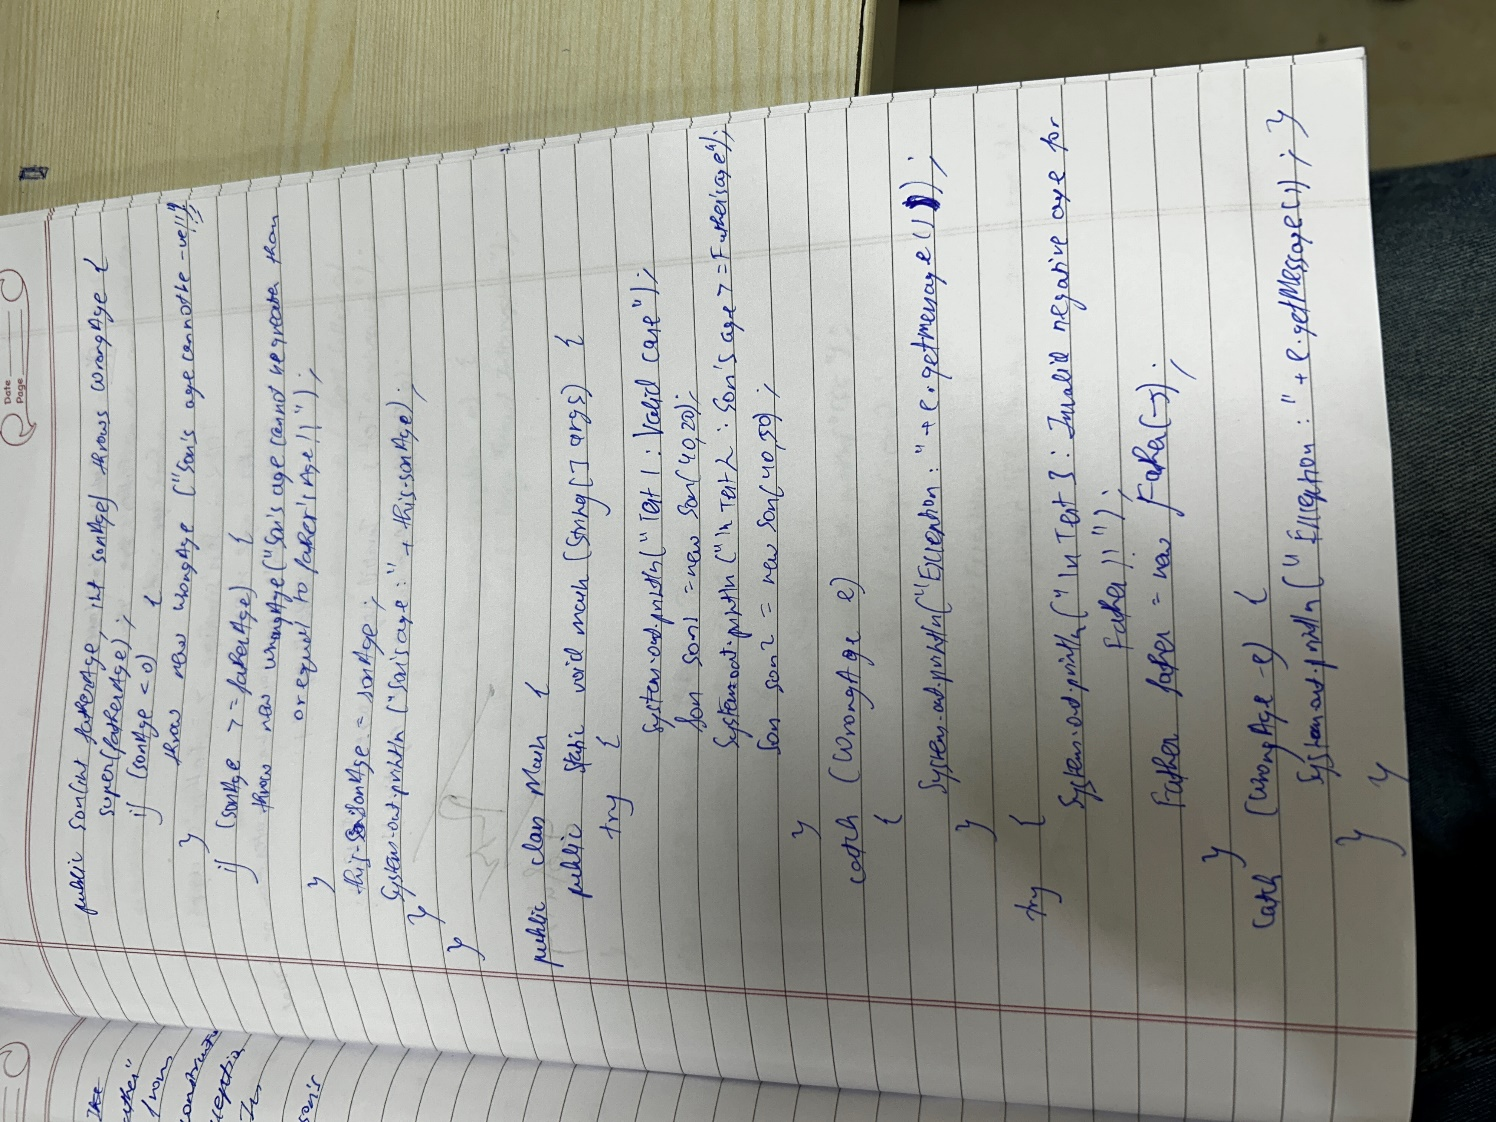 Date
Page
public Son(int fatherAge, int sonAge) throws WrongAge {
super(fatherAge);
if (sonAge < 0) {
throw new WrongAge ("Son's age cannot be -ve!!");
}
if (sonAge >= fatherAge) {
throw new WrongAge("Son's age cannot be greater than
or equal to father's Age!!");
}
this.sonAge = sonAge;
System.out.println ("Son's age:" + this.sonAge);
}
}
public class Main {
public static void main (String[] args) {
try {
System.out.println("Test 1: Valid case");
Son son1 = new Son(40,20);
System.out.println ("\n Test 2: Son's age >= Father's age");
Son son2 = new Son(40,50);
}
catch (WrongAge e)
{
System.out.println("Exception:" + e.getmessage());
}
try {
System.out.println("\n Test 3: Invalid negative age for
Father!!");
Father father = new Father(-5);
}
catch (WrongAge e) {
System.out.println(" Exception:" + e.getMessage()); }
}
}
}
The
from
son's